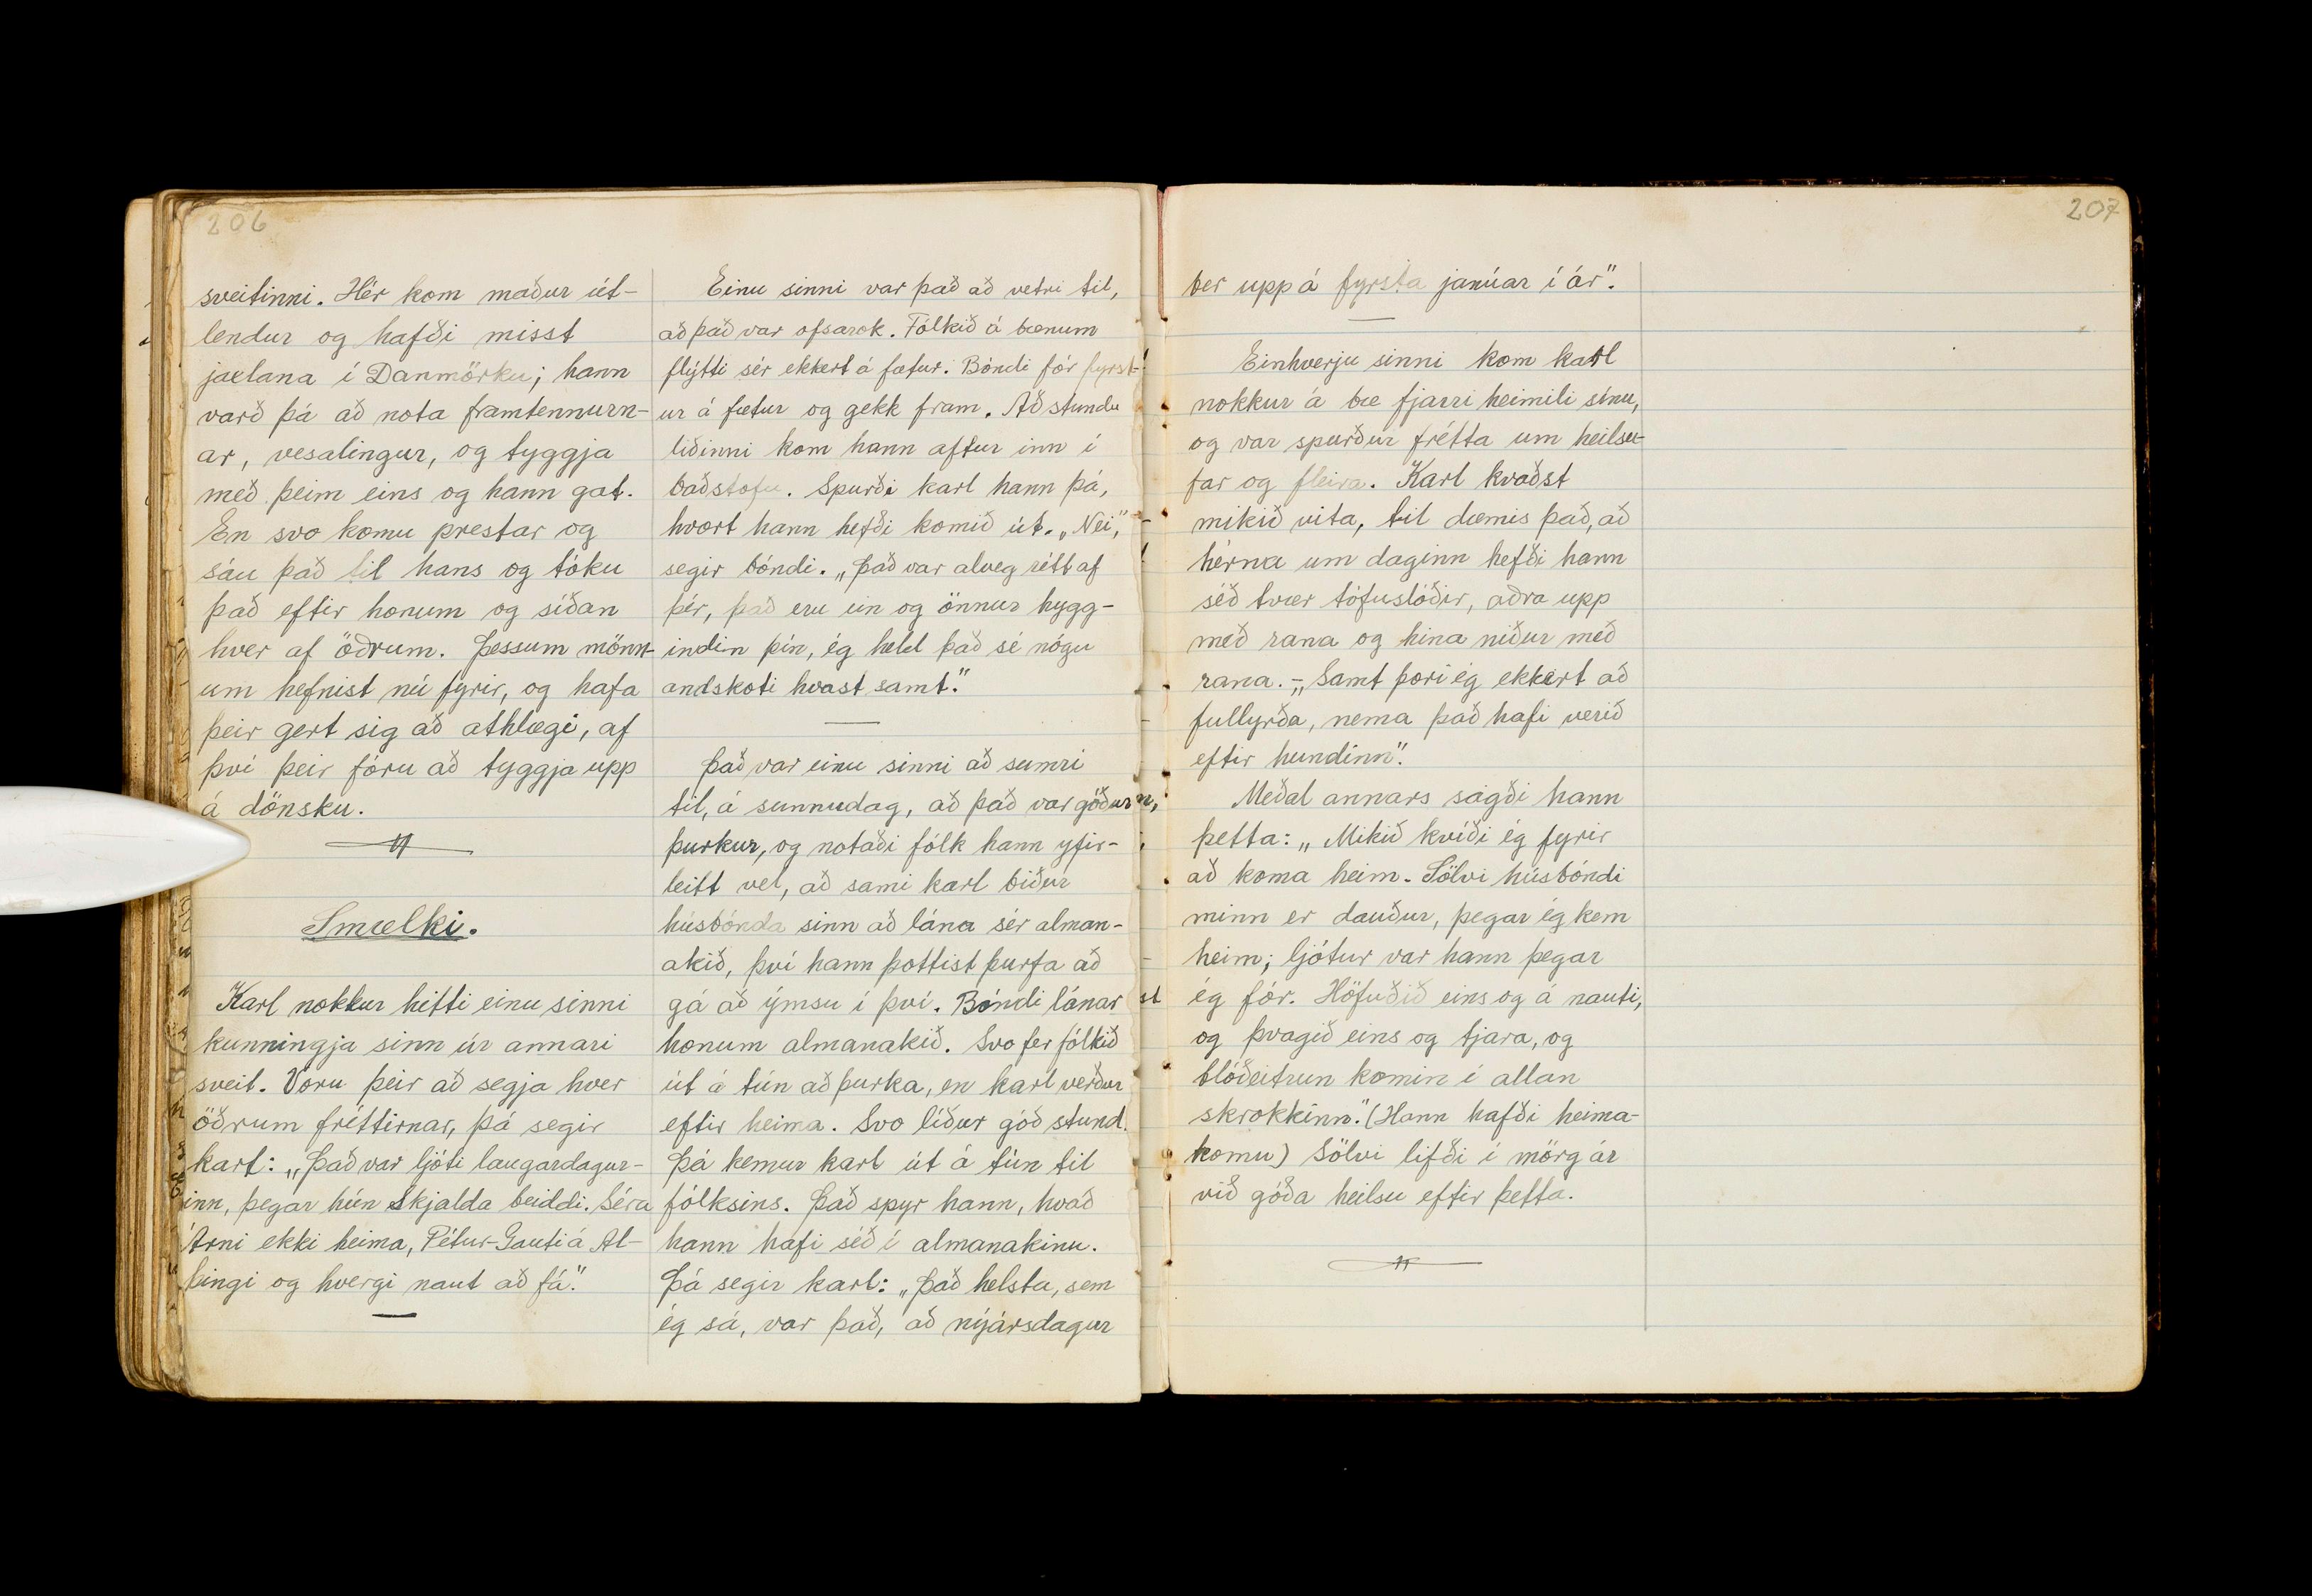 206
sveitinni. Hér kom maður út-
lendur og hafði misst
jaxlana í Danmörku; hann
varð þá að nota framtennurn-
ar, vesalingur, og tyggja
með þeim eins og hann gat.
En svo komu prestar og
sáu það til hans og tóku
það eftir honum og síðan
hver af öðrum. Þessum mönn-
um hefnist nú fyrir, og hafa
þeir gert sig að athlægi, af
því þeir fóru að tyggja upp
á dönsku.
Smælki.
Karl nokkur hitti einu sinni
kunningja sinn úr annari
sveit. Voru þeir að segja hver
öðrum fréttirnar, þá segir
karl: „Það var ljóti laugardagur-
inn, þegar hún Skjalda beiddi. Séra
Árni ekki heima, Pétur-Gauti á Al-
þingi og hvergi naut að fá."
Einu sinni var það að vetri til,
að það var ofsarok. Fólkið á bænum
flýtti sér ekkert á fætur. Bóndi fór fyrst-
ur á fætur og gekk fram. Að stundu
liðinni kom hann aftur inn í
baðstofu. Spurði karl hann þá,
hvort hann hefði komið út. „Nei,"
segir bóndi. „Það var alveg rétt af
þér, það eru ein og önnur hygg-
indin þín, ég held það sé nógu
andskoti hvast samt."
Það var einu sinni að sumri
til, á sunnudag, að það var góður
þurkur, og notaði fólk hann yfir-
leitt vel, að sami karl biður
húsbónda sinn að lána sér alman-
akið, því hann þottist þurfa að
gá að ýmsu í því. Bóndi lánar
honum almanakið. Svo fer fólkið
út á tún að þurka, en karl verður
eftir heima. Svo líður góð stund.
Þá kemur karl út á tún til
fólksins. Það spyr hann, hvað
hann hafi séð í almanakinu.
Þá segir karl: „Það helsta, sem
ég sá, var það, að nýársdagur
207
ber upp á fyrsta janúar í ár".
Einhverju sinni kom karl
nokkur á bæ fjarri heimili sínu,
og var spurður frétta um heilsu-
far og fleira. Karl kvaðst
mikið vita, til dæmis það, að
hérna um daginn hefði hann
séð tvær tófuslóðir, aðra upp
með rana og hina niður með
rana. - „Samt þori ég ekkert að
fullyrða, nema það hafi verið
eftir hundinn".
Meðal annars sagði hann
þetta: „Mikið kvíði ég fyrir
að koma heim. Sölvi húsbóndi
minn er dauður, þegar ég kem
heim; ljótur var hann þegar
ég fór. Höfuðið eins og á nauti,
og þvagið eins og tjara, og
blóðeitrun komin í allan
skrokkinn." (Hann hafði heima-
komu) Sölvi lifði í mörg ár
við góða heilsu eftir þetta.